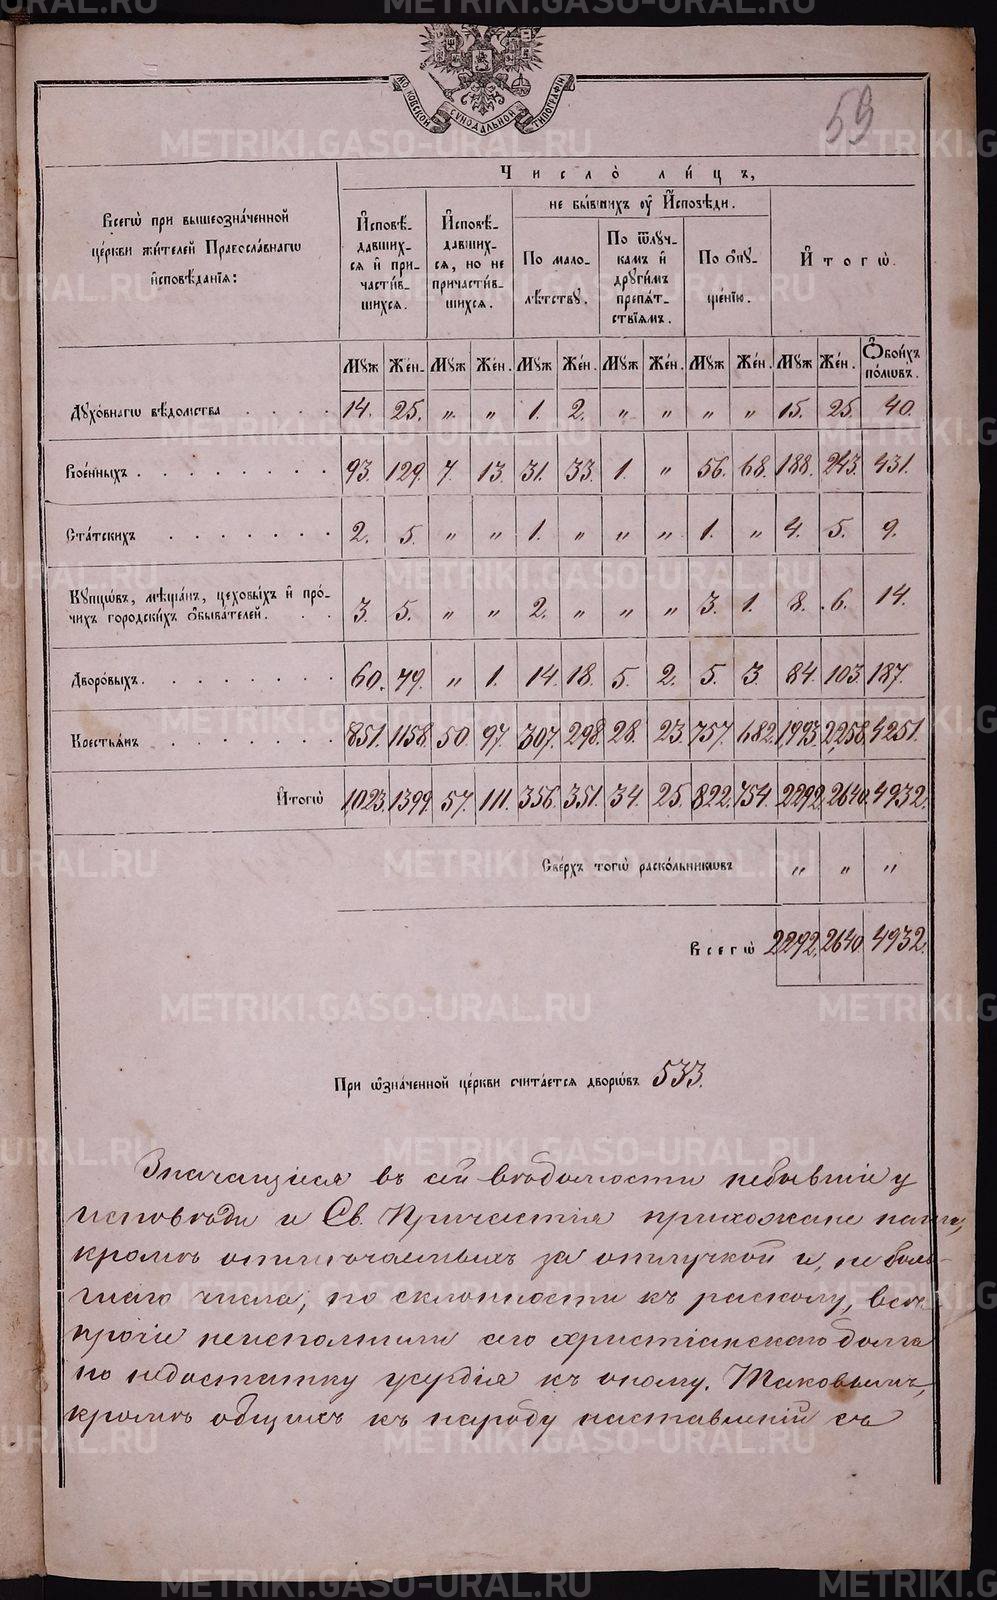 МО КОВСКОЙ СѴНОДАЛЬНОЙ ТИПОГРАФІИ
59
Всегѡ̀ при вышеозна́ченной це́ркви жи́телей Правосла́внагѡ и҆сповѣ́данїѧ:
Число̀ ли́цъ,
И҆сповѣ́давшихсѧ и҆ причасти́вшихсѧ.
И҆сповѣ́давшихсѧ, но не причасти́вшихсѧ.
не бы́вшихъ ᲂу҆ И҆́сповѣди.
По малолѣ́тствꙋ.
По ѿлꙋ́чкамъ и҆ дрꙋги́мъ препѧ́тствїѧмъ.
По ѻ҆пꙋще́нїю.
И҆того̀.
Мꙋж Же́н. Мꙋж Же́н. Мꙋж Же́н. Мꙋж Же́н. Мꙋж Же́н. Мꙋж Же́н. Ѻ҆бои́хъ по́лѡвъ.
Дꙋхо́внагѡ вѣ́домства . . . . 14. 25. " " 1. 2. " " " " 15. 25. 40.
Вое́нныхъ . . . . . . . . 93. 129. 7. 13. 31. 33. 1. " 56. 68. 188. 243. 431.
Ста́тскихъ . . . . . . . 2. 5. " " 1. " " " 1. " 4. 5. 9.
Кꙋпцѡ́въ, мѣща́нъ, цеховы́хъ и҆ про́чихъ городски́хъ ѻ҆быва́телей. . . 3. 5. " " 2. " " " 3. 1. 8. 6. 14.
Дворо́выхъ. . . . . . . . 60. 79. " 1. 14. 18. 5. 2. 5. 3. 84. 103. 187.
Крестьѧ́нъ . . . . . . . 851. 1158. 50. 97. 307. 298. 28. 23. 757. 682. 1993. 2258. 4251.
И҆того̀ 1023. 1399. 57. 111. 356. 351. 34. 25. 822. 754. 2292. 2640. 4932.
Све́рхъ тогѡ̀ раско́льникѡвъ " " "
Всегѡ̀ 2292. 2640. 4932.
При ѡ҆зна́ченной це́ркви счита́етсѧ дворѡ́въ 533.
Значащіеся въ сей вѣдомости небывшіи у
исповѣди и Св. Причастія прихожане наши,
кромѣ отлучаемыхъ за отлучкой и, не боль-
шаго числа, по склонности къ расколу, всѣ
прочіи неисполнили сего христіанскаго долга
по недостатку усердія къ оному. Таковымъ,
кромѣ общихъ къ народу наставленій съ
METRIKI.GASO-URAL.RU